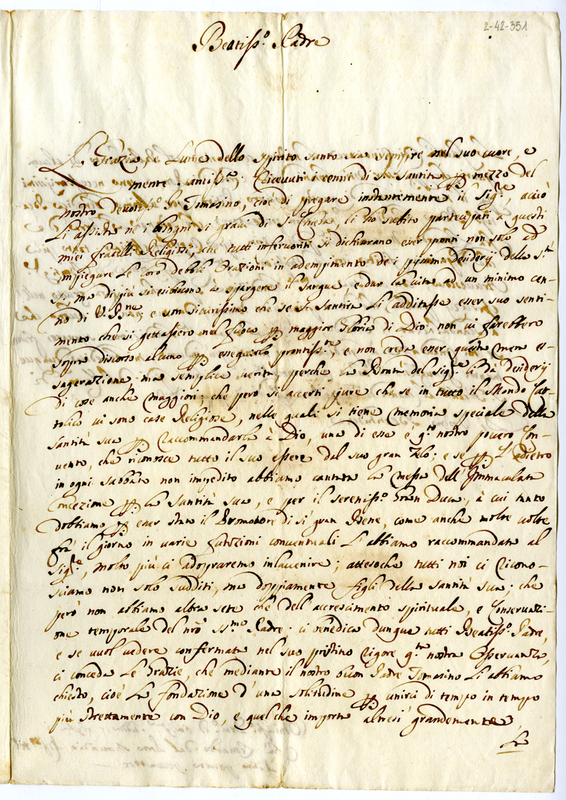 2-42-351
Beatiss.º Padre
La Grazia e Lume dello Spirito Santo sia sempre nel suo cuore, e
mente Santiss.ª; Ricevuti i cenni di S. Santità p mezzo del
nostro Tomasino, cioè di pregare instantemente il Sig.re, acciò
L'assista ne i bisogni sì gravi di S.ta Chiesa li hò subito partecipati à questi
miei fratelli Religiosi, che tutti infervoriti si dichiarano esser pronti non solo ad
impiegare le loro debboli Orazioni in adempimento de i desiderij della S.tà
S. ma di più si esibiscono à spargere il sangue, e dar la vita ad un minimo cen-
no di V. Bne, e son sicurissimo che se S. Santità Li additasse esser suo senti-
mento che si gettassero nel fuoco p maggior Gloria di Dio, non vi farebbero
sopra discorso alcuno p eseguirlo prontiss.te, e non creda esser questa mera es-
sagerazione ma semplice verità, perche la Bontà del Sig.re Li dà desiderij
di cose anche maggiori; che però si accerti pure che se in tutto il Mondo Cat-
tolico vi sono case Religiose, nelle quali si tiene memoria speciale della
Santità sua p raccommandarla à Dio, una di esse è q.to nostro povero Con-
vento, che riconosce tutto il suo essere dal suo gran Zelo; e se p l'adietro
in ogni Sabbato non impedito abbiamo cantata la Messa dell'Immaculata
Concezione p la Santità Sua, e per il Sereniss.º Gran Duca, à cui tanto
dobbiamo p esser stato il Promotore di sì gran Bene, come anche molte volte
frà il giorno in varie funzioni conventuali L'abbiamo raccommandato al
Sig.re, molto più ci adopraremo in l'avvenire; attesoche tutti noi ci ricono-
sciamo non solo sudditi, ma doppiamente figli della Santità sua; che
però non abbiamo altra sete che dell'accrescimento spirituale, e Conservati-
one temporale del nrõ S.mo Padre; ci benedica dunque tutti Beatiss.º Padre,
e se vuol vedere confermata nel suo pristino rigore q.ta nostra Osservanza,
ci conceda Le Grazie, che mediante il nostro buon Padre Tomasino Li abbiamo
chiesto, cioè La fondazione d'una solitudine p unirci di tempo in tempo
più strettamente con Dio, e quelche importa altresì grandemente